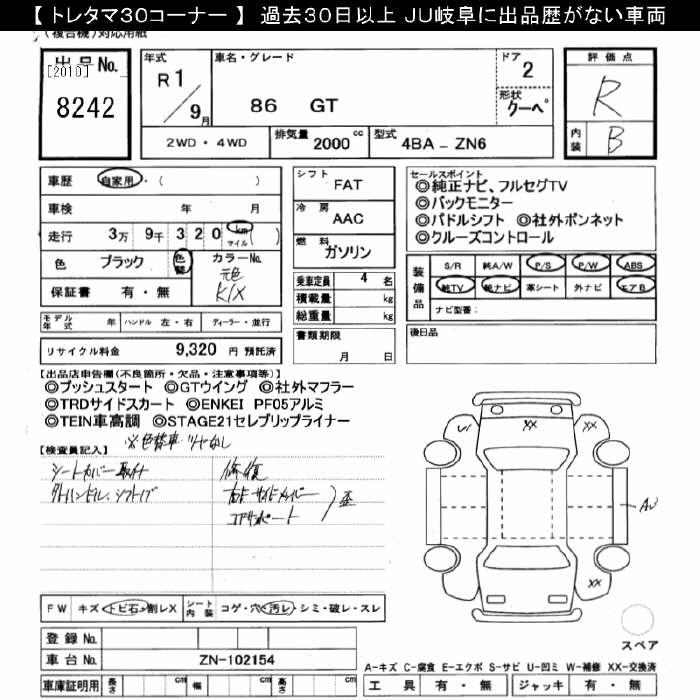 【 トレタマ30コーナー 】 過去30日以上 JU岐阜に出品歴がない車両
(複合機)対応用紙
出品No.
[2010]
8242
年式
R1/9月
車名・グレード
86 GT
ドア
2
形状
クーペ
評価点
R
内装
B
2WD・4WD
排気量 2000 cc
型式 4BA - ZN6
車歴 自家用・( )
車検 年 月
走行 3万 9千 320 km マイル ( )
色 ブラック 色替
カラーNo.
元色
K1X
保証書 有・無
シフト FAT
冷房 AAC
燃料 ガソリン
乗車定員 4 名
積載量 kg
総重量 kg
書類期限
月 日
セールスポイント
◎純正ナビ、フルセグTV
◎バックモニター
◎パドルシフト ◎社外ボンネット
◎クルーズコントロール
装備品
S/R 純A/W P/S P/W ABS
純TV 純ナビ 革シート 外ナビ エアB
ナビ型番:
後日品
モデル年式 年 ハンドル 左・右 ディーラー・並行
リサイクル料金 9,320 円 預託済
【出品店申告欄(不良箇所・欠品・注意事項等)】
◎プッシュスタート ◎GTウイング ◎社外マフラー
◎TRDサイドスカート ◎ENKEI PF05アルミ
◎TEIN車高調 ◎STAGE21セレブリップライナー
※色替車 ツヤなし
【検査員記入】
シートカバー取付
修復
右F サイドメンバー
コアサポート
歪
U1
XX
XX
AU
XX
FW キズ・トビ石・割レX
シート内装 コゲ・穴・汚レ・シミ・破レ・スレ
登録No.
車台No. ZN-102154
車庫証明用 長さ cm 幅 cm 高さ cm
スペア
A-キズ C-腐食 E-エクボ S-サビ U-凹ミ W-補修 XX-交換済
工具 有・無 ジャッキ 有・無